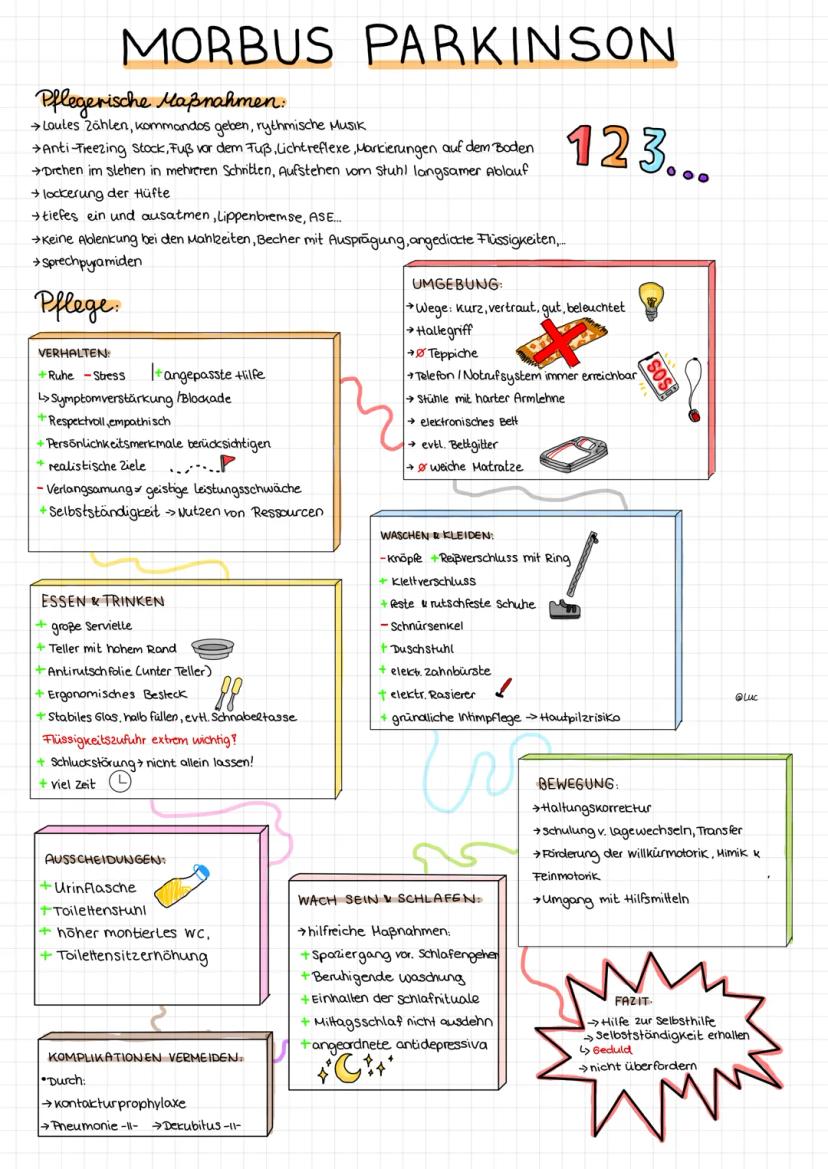 MORBUS PARKINSON
Pflegerische Maßnahmen:
→ Lautes Zählen, Kommandos geben, rythmische Musik
→ Anti-Freezing Stock, Fuß vor dem Fuß, Lichtreflexe, Markierungen auf dem Boden
→ Drehen im stehen in mehreren Schritten, Aufstehen vom Stuhl langsamer Ablauf
→ lockerung der Hüfte
→ tiefes ein und ausatmen, Lippenbremse, ASE...
→ Keine Ablenkung bei den Mahlzeiten, Becher mit Ausprägung, angedickte Flüssigkeiten,...
→ Sprechpyramiden
123...
Pflege:
VERHALTEN:
+ Ruhe - Stress |+ angepasste Hilfe
↳ Symptomverstärkung / Blockade
+ Respektvoll, empathisch
+ Persönlichkeitsmerkmale berücksichtigen
+ realistische Ziele
- Verlangsamung ≠ geistige Leistungsschwäche
+ Selbstständigkeit → Nutzen von Ressourcen
UMGEBUNG:
→ Wege: kurz, vertraut, gut, beleuchtet
→ Haltegriff
→ Ø Teppiche
→ Telefon / Notrufsystem immer erreichbar
SOS
→ Stühle mit harter Armlehne
→ elektronisches Bett
→ evtl. Bettgitter
→ Ø weiche Matratze
WASCHEN & KLEIDEN:
- Knöpfe + Reißverschluss mit Ring
+ Klettverschluss
+ feste & rutschfeste Schuhe
- Schnürsenkel
+ Duschstuhl
+ elektr. Zahnbürste
+ elektr. Rasierer
+ gründliche Intimpflege → Hautpilzrisiko
@Luc
ESSEN & TRINKEN
+ große Serviette
+ Teller mit hohem Rand
+ Antirutschfolie (unter Teller)
+ Ergonomisches Besteck
+ Stabiles Glas, halb füllen, evtl. Schnabeltasse
Flüssigkeitszufuhr extrem wichtig!
+ Schluckstörung → nicht allein lassen!
+ viel Zeit
BEWEGUNG:
→ Haltungskorrektur
→ Schulung v. Lagewechseln, Transfer
→ Förderung der Willkürmotorik, Mimik &
Feinmotorik
→ Umgang mit Hilfsmitteln
AUSSCHEIDUNGEN:
+ Urinflasche
+ Toilettenstuhl
+ höher montiertes WC,
+ Toilettensitzerhöhung
WACH SEIN & SCHLAFEN:
→ hilfreiche Maßnahmen:
+ Spaziergang vor. Schlafengehen
+ Beruhigende Waschung
+ Einhalten der Schlafrituale
+ Mittagsschlaf nicht ausdehn
+ angeordnete antidepressiva
FAZIT:
→ Hilfe zur Selbsthilfe
→ Selbstständigkeit erhalten
↳ Geduld
→ nicht überfordern
KOMPLIKATIONEN VERMEIDEN:
• Durch:
→ Kontakturprophylaxe
→ Pneumonie -||- → Dekubitus -||-